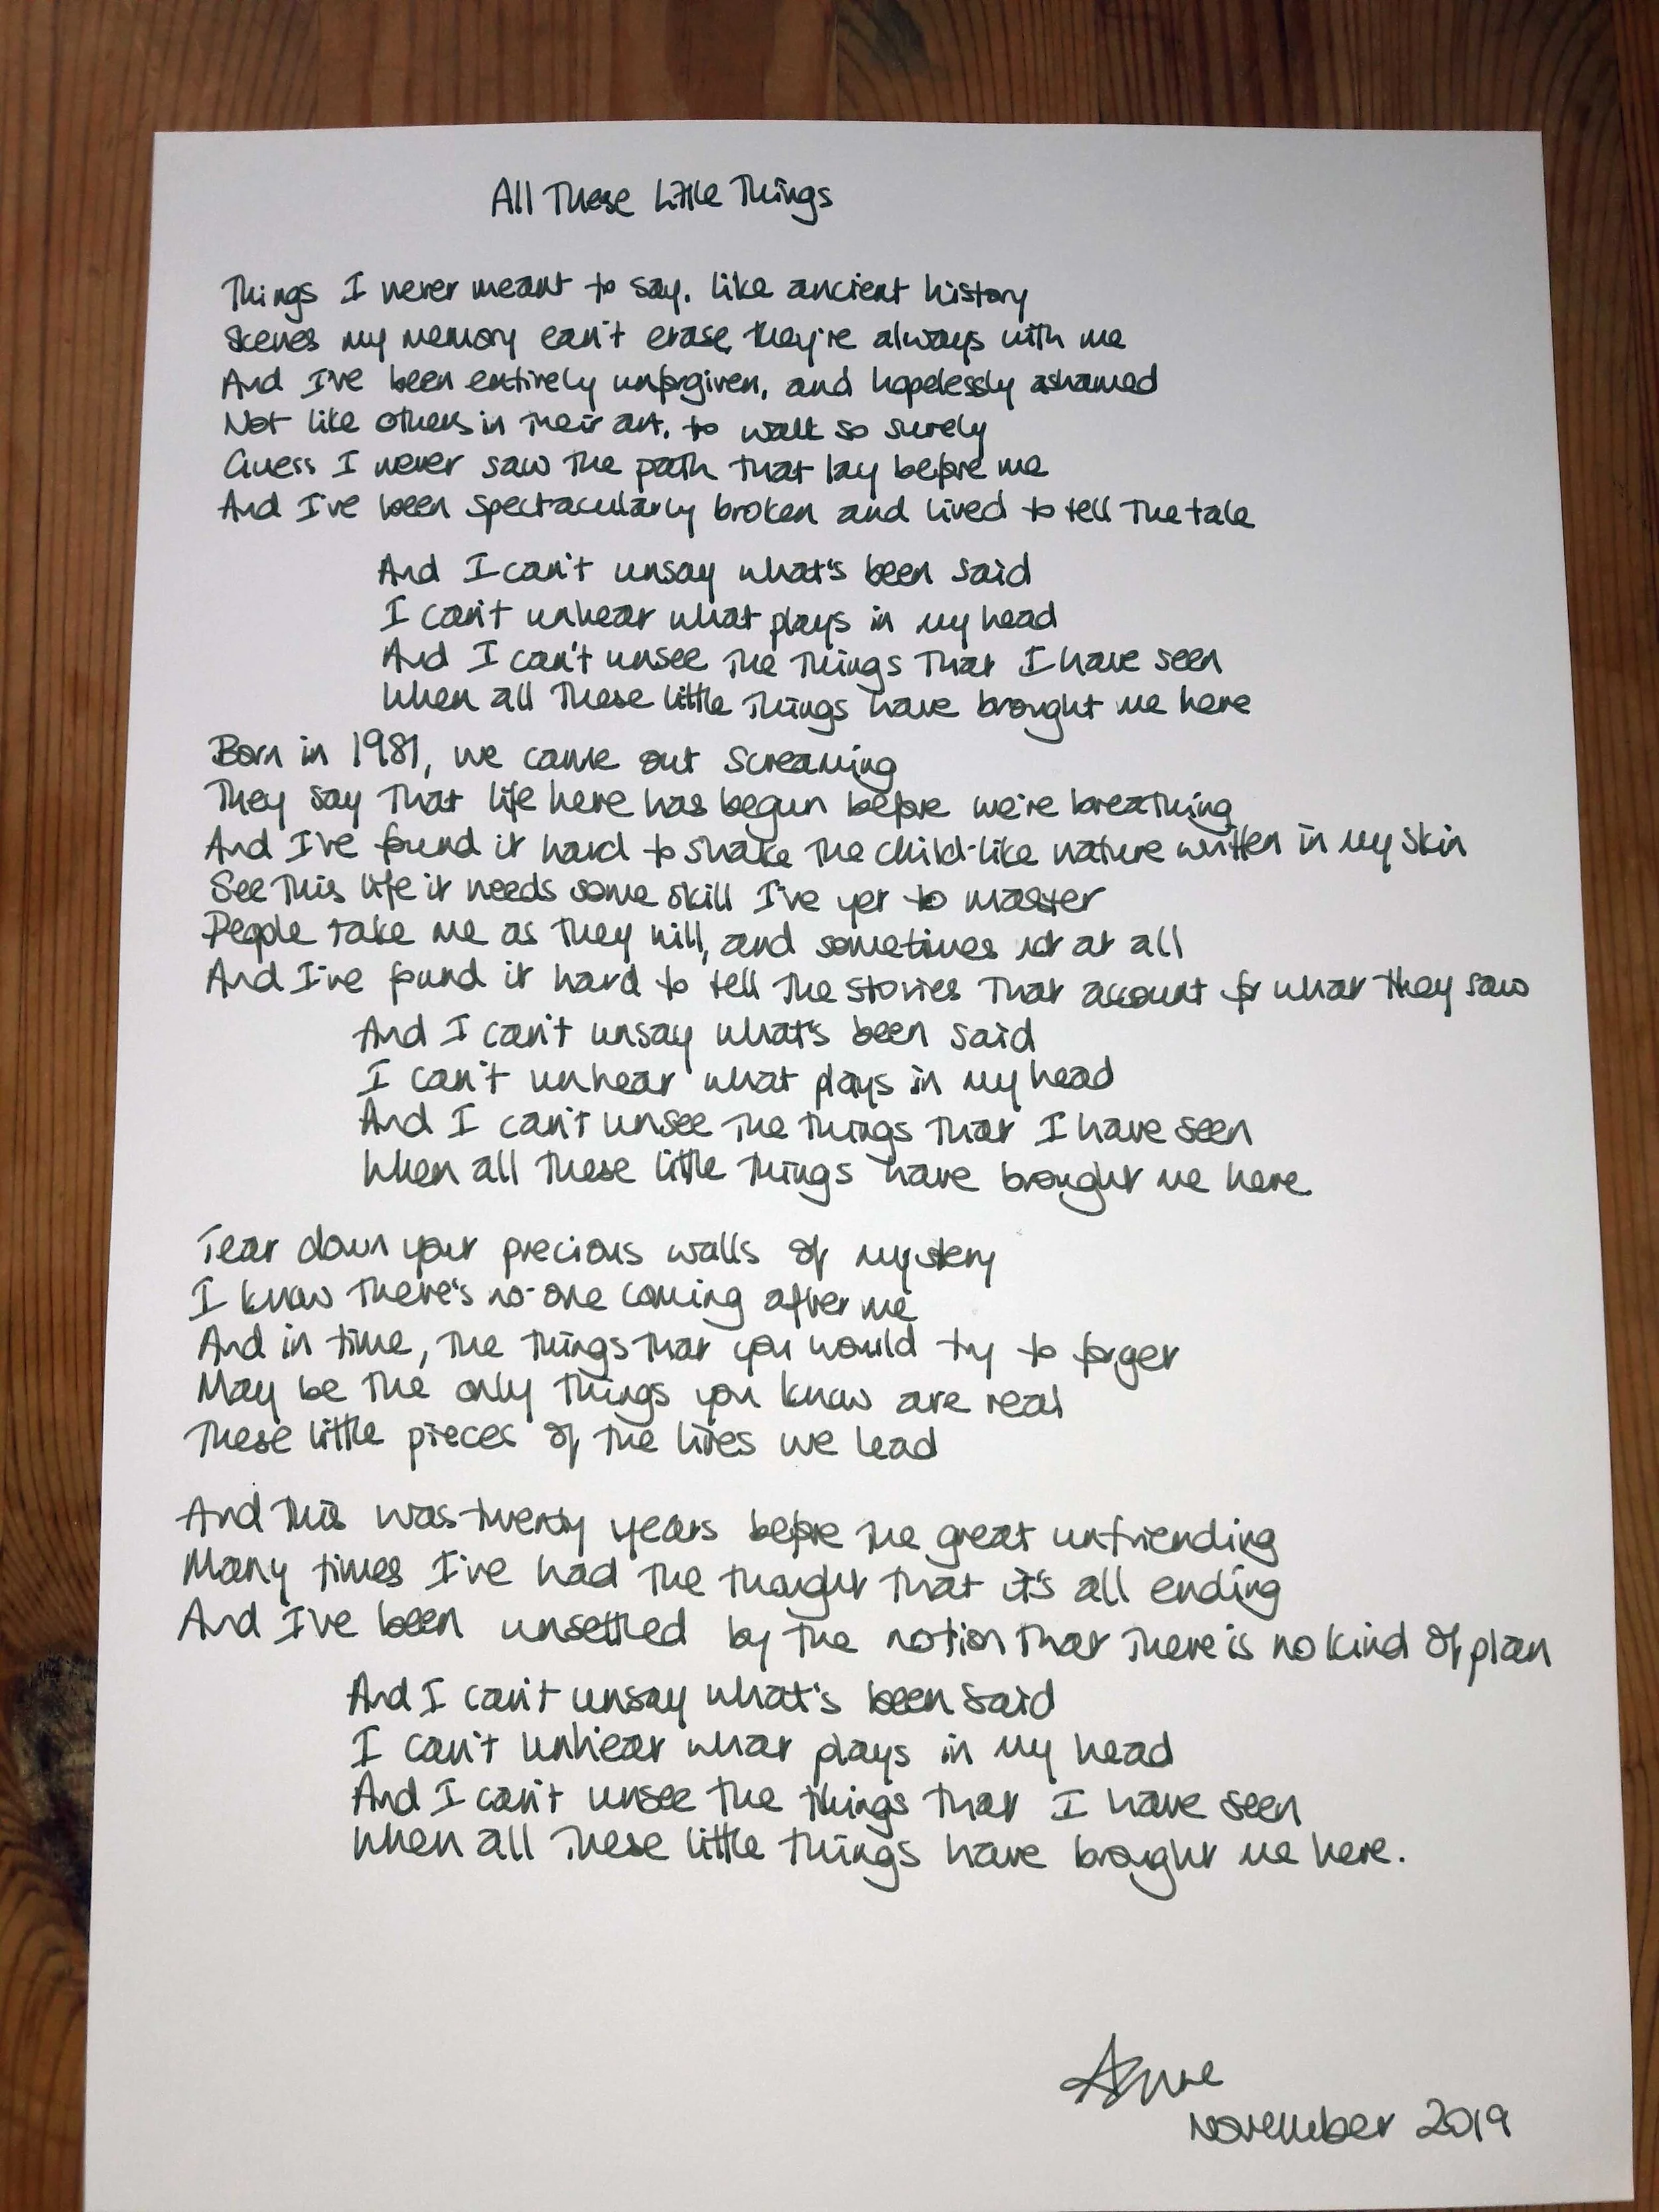 All These Little Things
Things I never meant to say, like ancient history
Scenes my memory can't erase, they're always with me
And I've been entirely unforgiven, and hopelessly ashamed
Not like others in their art, to walk so surely
Guess I never saw the path that lay before me
And I've been spectacularly broken and lived to tell the tale
And I can't unsay what's been said
I can't unhear what plays in my head
And I can't unsee the things that I have seen
When all these little things have brought me here
Born in 1981, we came out screaming
They say that life here has begun before we're breathing
And I've found it hard to shake the child-like nature written in my skin
See this life it needs some skill I've yet to master
People take me as they will, and sometimes not at all
And I've found it hard to tell the stories that account for what they saw
And I can't unsay what's been said
I can't unhear what plays in my head
And I can't unsee the things that I have seen
When all these little things have brought me here.
Tear down your precious walls of mystery
I know there's no-one coming after me
And in time, the things that you would try to forget
May be the only things you know are real
These little pieces of the lives we lead
And this was twenty years before the great unfriending
Many times I've had the thought that it's all ending
And I've been unsettled by the notion that there is no kind of plan
And I can't unsay what's been said
I can't unhear what plays in my head
And I can't unsee the things that I have seen
When all these little things have brought me here.
November 2019